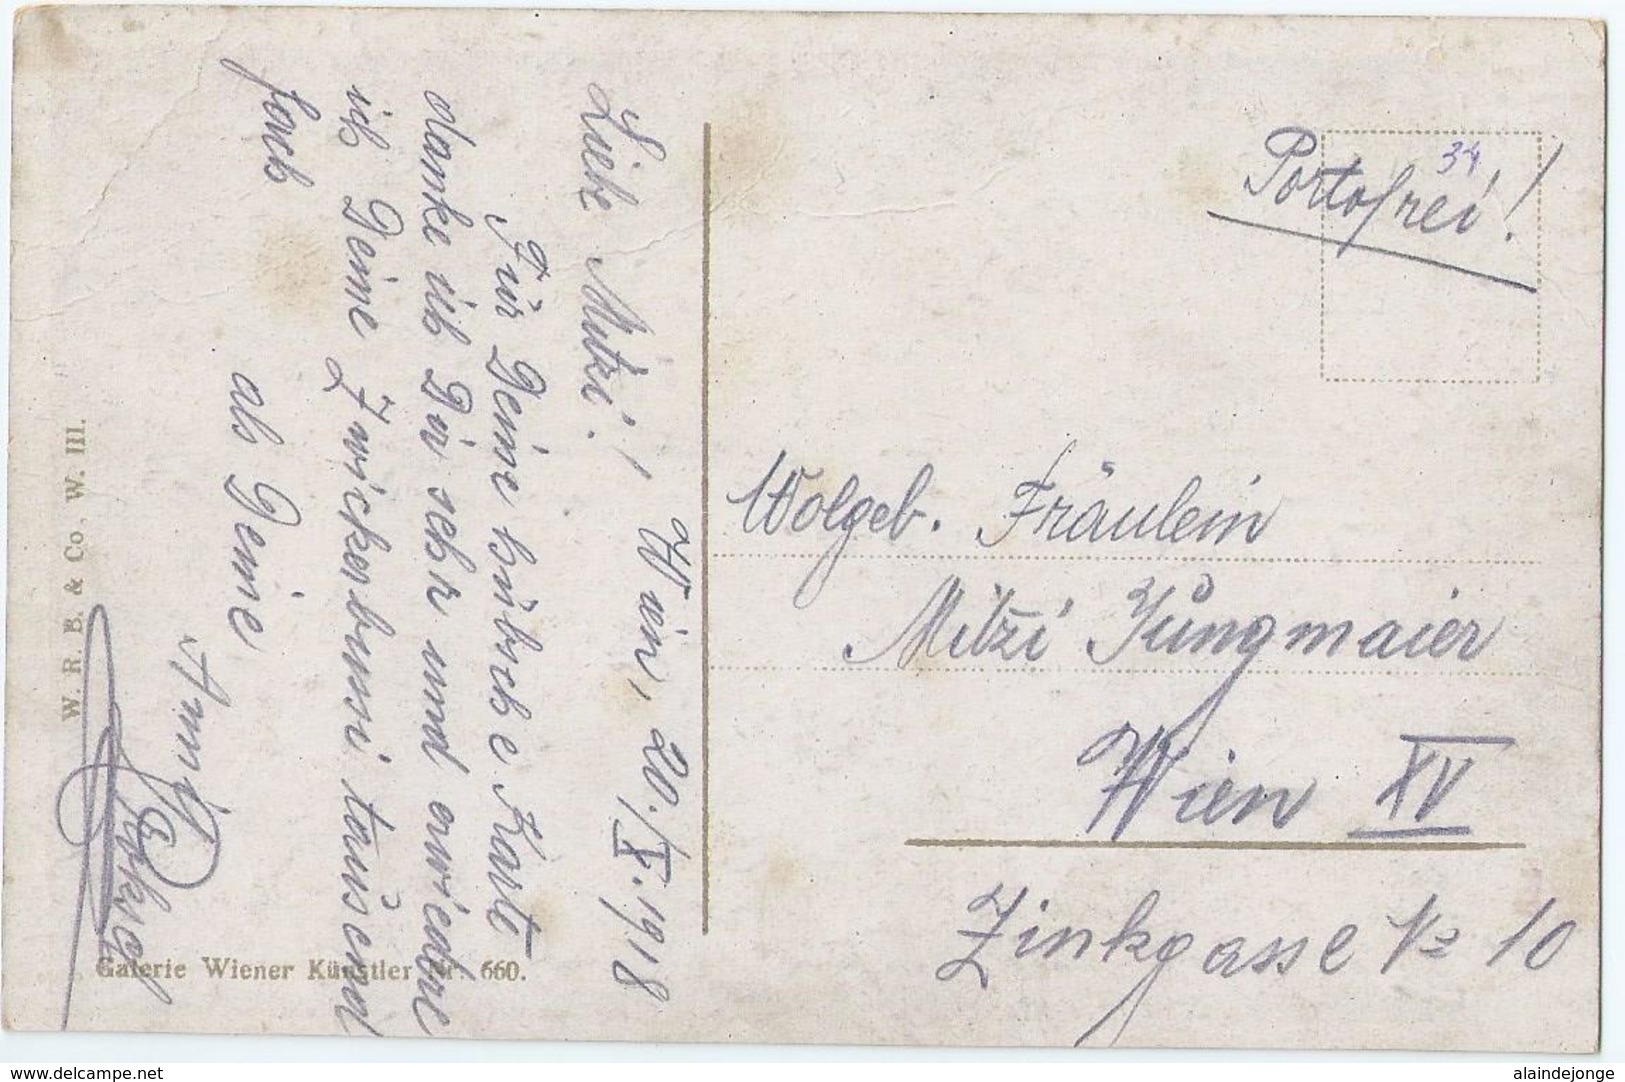 Wien, 20./X. 1918
Liebe Mitzi!
Für Deine hübsche Karte
danke ich Dir sehr und erwiedre
ich Deine Zwickerbussi tausend
fach
als Deine
Anni
Portofrei!
34
Wolgeb. Fräulein
Mitzi Jungmaier
Wien XV
Zinkgasse No 10
W. R. B. & Co, W. III.
Galerie Wiener Künstler Nr. 660.
www.delcampe.net
alaindejonge